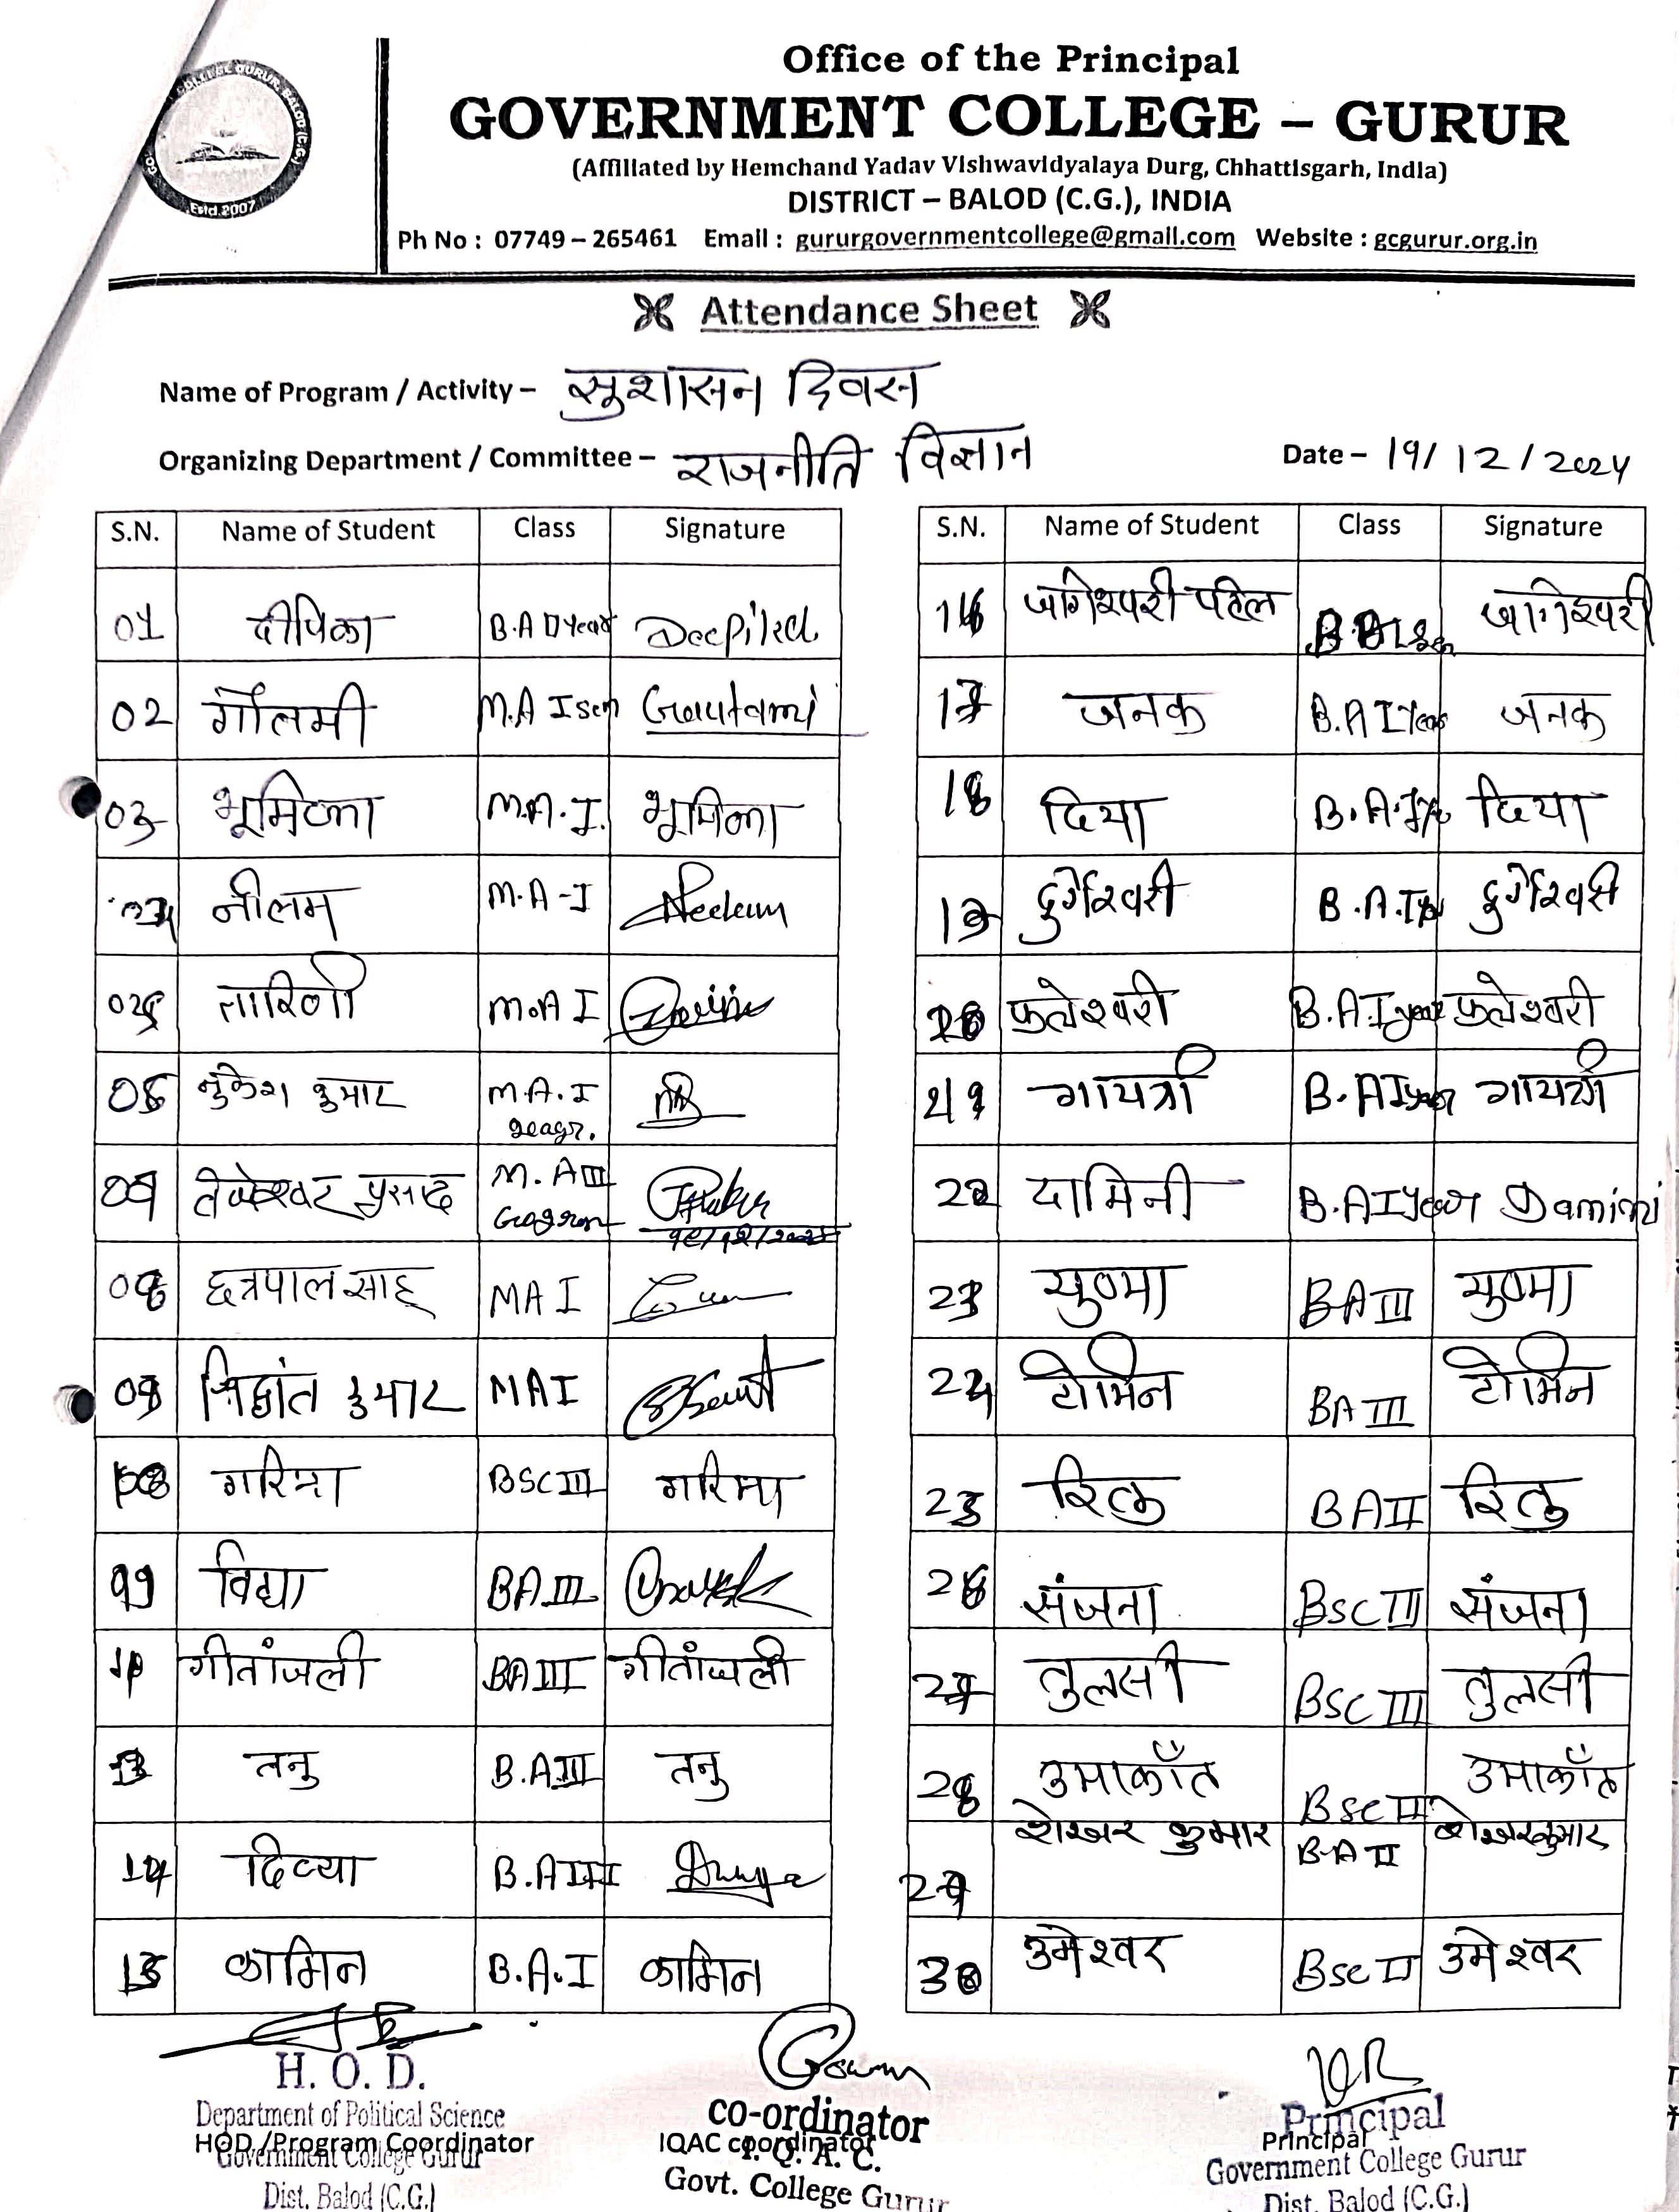 COLLEGE GURUR, BALOD (C.G.)
Estd.2007
Office of the Principal
GOVERNMENT COLLEGE – GURUR
(Affiliated by Hemchand Yadav Vishwavidyalaya Durg, Chhattisgarh, India)
DISTRICT – BALOD (C.G.), INDIA
Ph No : 07749 – 265461 Email : gururgovernmentcollege@gmail.com Website : gcgurur.org.in
Attendance Sheet
Name of Program / Activity – सुशासन दिवस
Organizing Department / Committee – राजनीति विज्ञान Date – 19/12/2024
S.N. Name of Student Class Signature
01 दीपिका B.A II year Deepika
02 गौतमी M.A I sem Gautami
03 भूमिका M.A.I. भूमिका
04 नीलम M.A-I Neelam
05 तारिणी M.A I
06 मुकेश कुमार M.A.I geogr.
07 प्रसाद M. A III
08 छत्रपाल साहू MA I
09 सिद्धांत कुमार MA I
10 गरिमा BSC III गरिमा
11 विद्या BA III
12 गीतांजली BA III गीतांजली
13 तनु B.A III तनु
14 दिव्या B.A III
15 कामिन B.A.I कामिन
S.N. Name of Student Class Signature
16 जागेश्वरी जागेश्वरी
17 जनक B.A I Year जनक
18 दिया B.A.I दिया
19 दुर्गेश्वरी B.A.I दुर्गेश्वरी
20 फुलेश्वरी B.A I year फुलेश्वरी
21 गायत्री B.A I year गायत्री
22 दामिनी B.A I year Damini
23 BA III
24 टोमिन BA III टोमिन
25 रितु BA II रितु
26 संजना BSC III संजना
27 तुलसी BSC III तुलसी
28 उमाकाँत BSC III उमाकाँत
29 शेखर कुमार B.A II शेखर कुमार
30 उमेश्वर BSC II उमेश्वर
H. O. D.
Department of Political Science
HOD /Program Coordinator
Government College Gurur
Dist. Balod (C.G.)
co-ordinator
IQAC coordinator
I. Q. A. C.
Govt. College Gurur
Principal
Principal
Government College Gurur
Dist. Balod (C.G.)